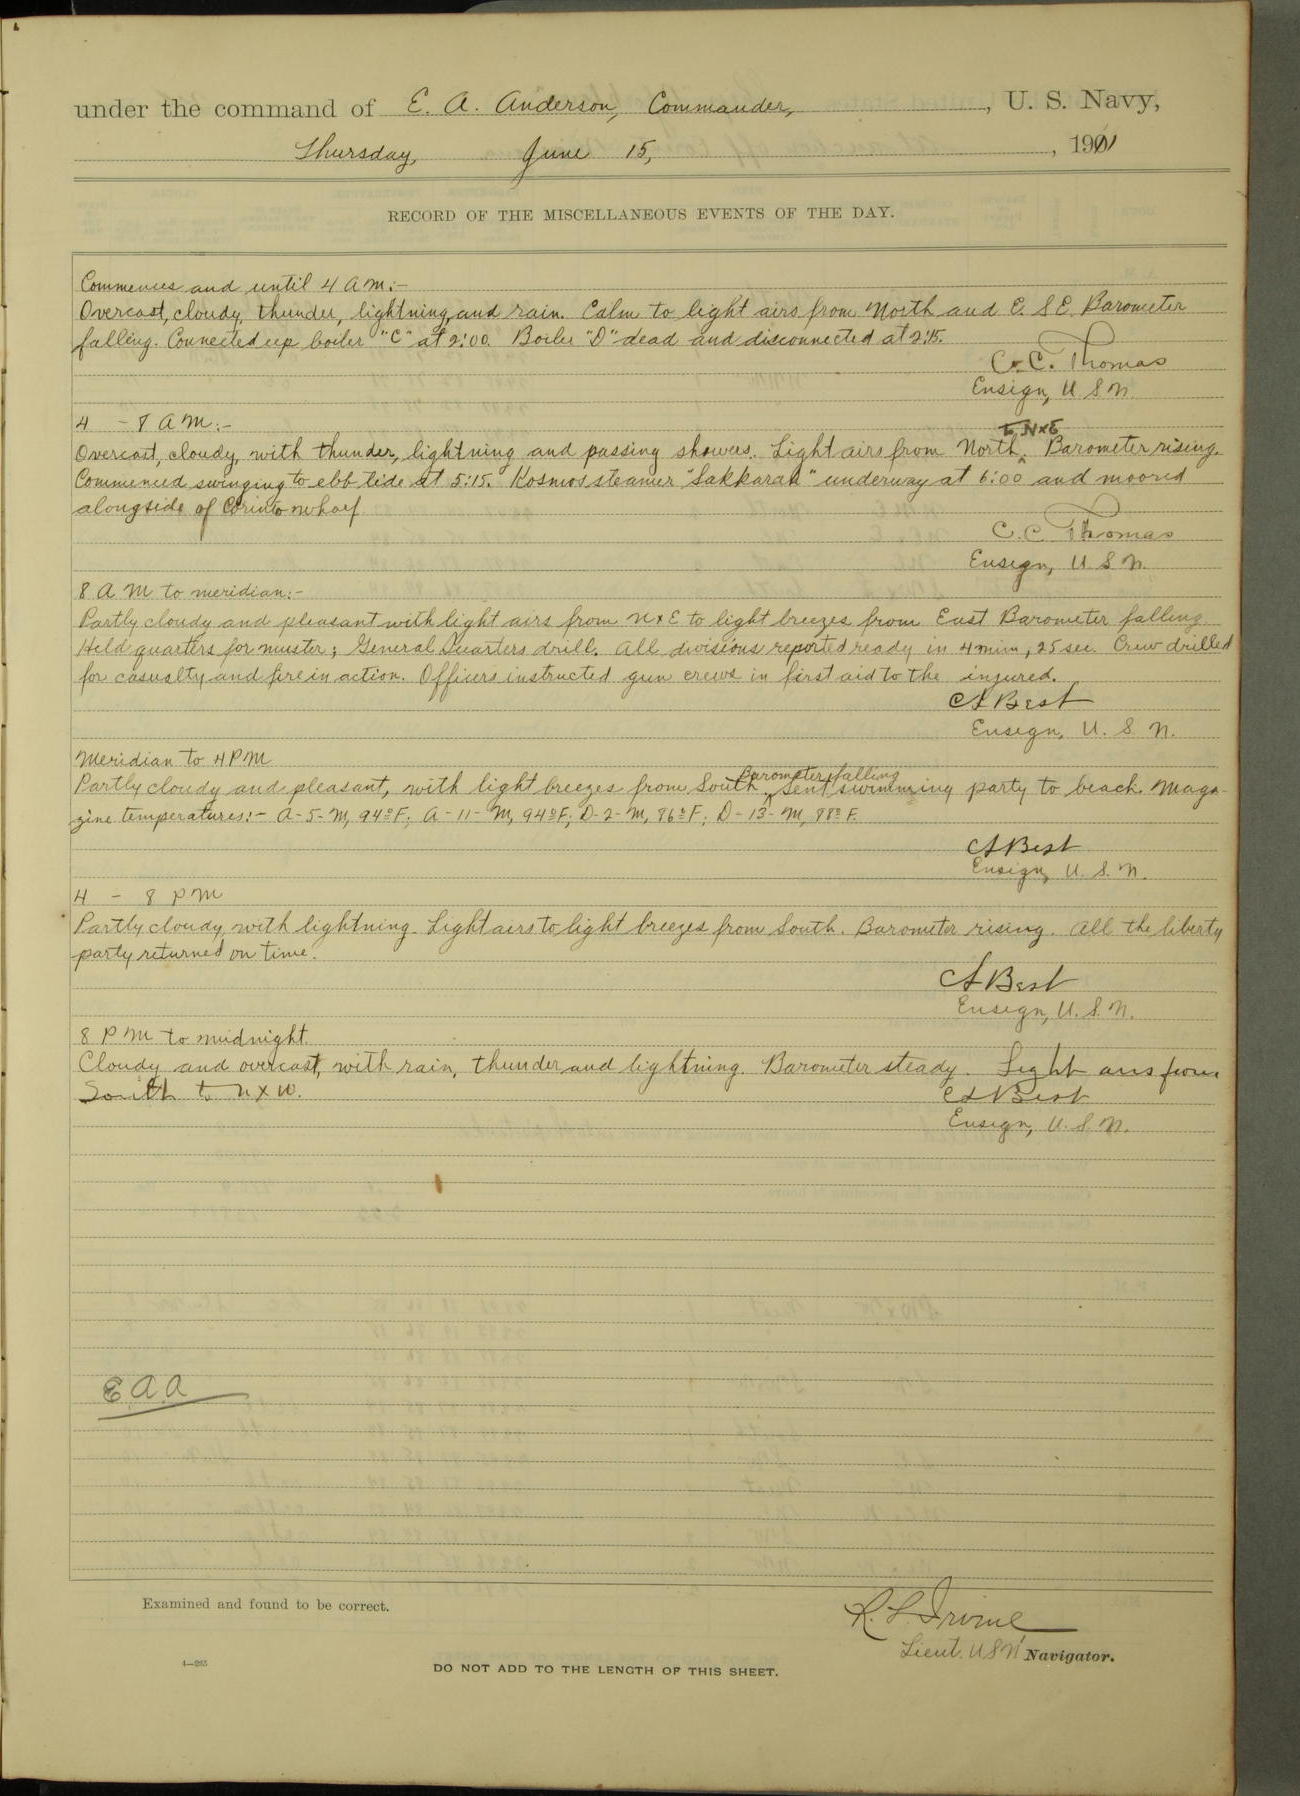 under the command of E. A. Anderson, Commander, , U. S. Navy,
Thursday, June 15, , 1911
RECORD OF THE MISCELLANEOUS EVENTS OF THE DAY.
Commences and until 4 A M:-
Overcast, cloudy, thunder, lightning, and rain. Calm to light airs from North and E. S E. Barometer
falling. Connected up boiler "C" at 2:00. Boiler "D" dead and disconnected at 2:15.
C. C. Thomas
Ensign, U. S N.
4 - 8 A M:-
to NxE
Overcast, cloudy, with thunder, lightning and passing showers. Light airs from North^. Barometer rising.
Commenced swinging to ebb tide at 5:15. Kosmos steamer "Sakkarah" underway at 6:00 and moored
alongside of Corinto wharf
C. C. Thomas
Ensign, U S N.
8 A M to meridian:-
Partly cloudy and pleasant with light airs from NxE to light breezes from East Barometer falling
Held quarters for muster; General Quarters drill. All divisions reported ready in 4 min, 25 sec. Crew drilled
for casualty and fire in action. Officers instructed gun crews in first aid to the injured.
C L Best
Ensign, U. S. N.
Meridian to 4 P M
Barometer falling
Partly cloudy and pleasant, with light breezes from South.^ Sent swimming party to beach. Maga-
zine temperatures:- A-5-M, 94°F; A-11-M, 94°F; D-2-M, 86°F; D-13-M, 88° F.
C L Best
Ensign, U. S. N.
4 - 8 P M
Partly cloudy, with lightning. Light airs to light breezes from South. Barometer rising. All the liberty
party returned on time.
C L Best
Ensign, U. S. N.
8 P M to midnight.
Cloudy and overcast, with rain, thunder and lightning. Barometer steady. Light airs from
South to N x W.
C L Best
Ensign, U. S. N.
E. A. A
Examined and found to be correct.
R. L. Irvine
Lieut. U S N Navigator.
4—265
DO NOT ADD TO THE LENGTH OF THIS SHEET.